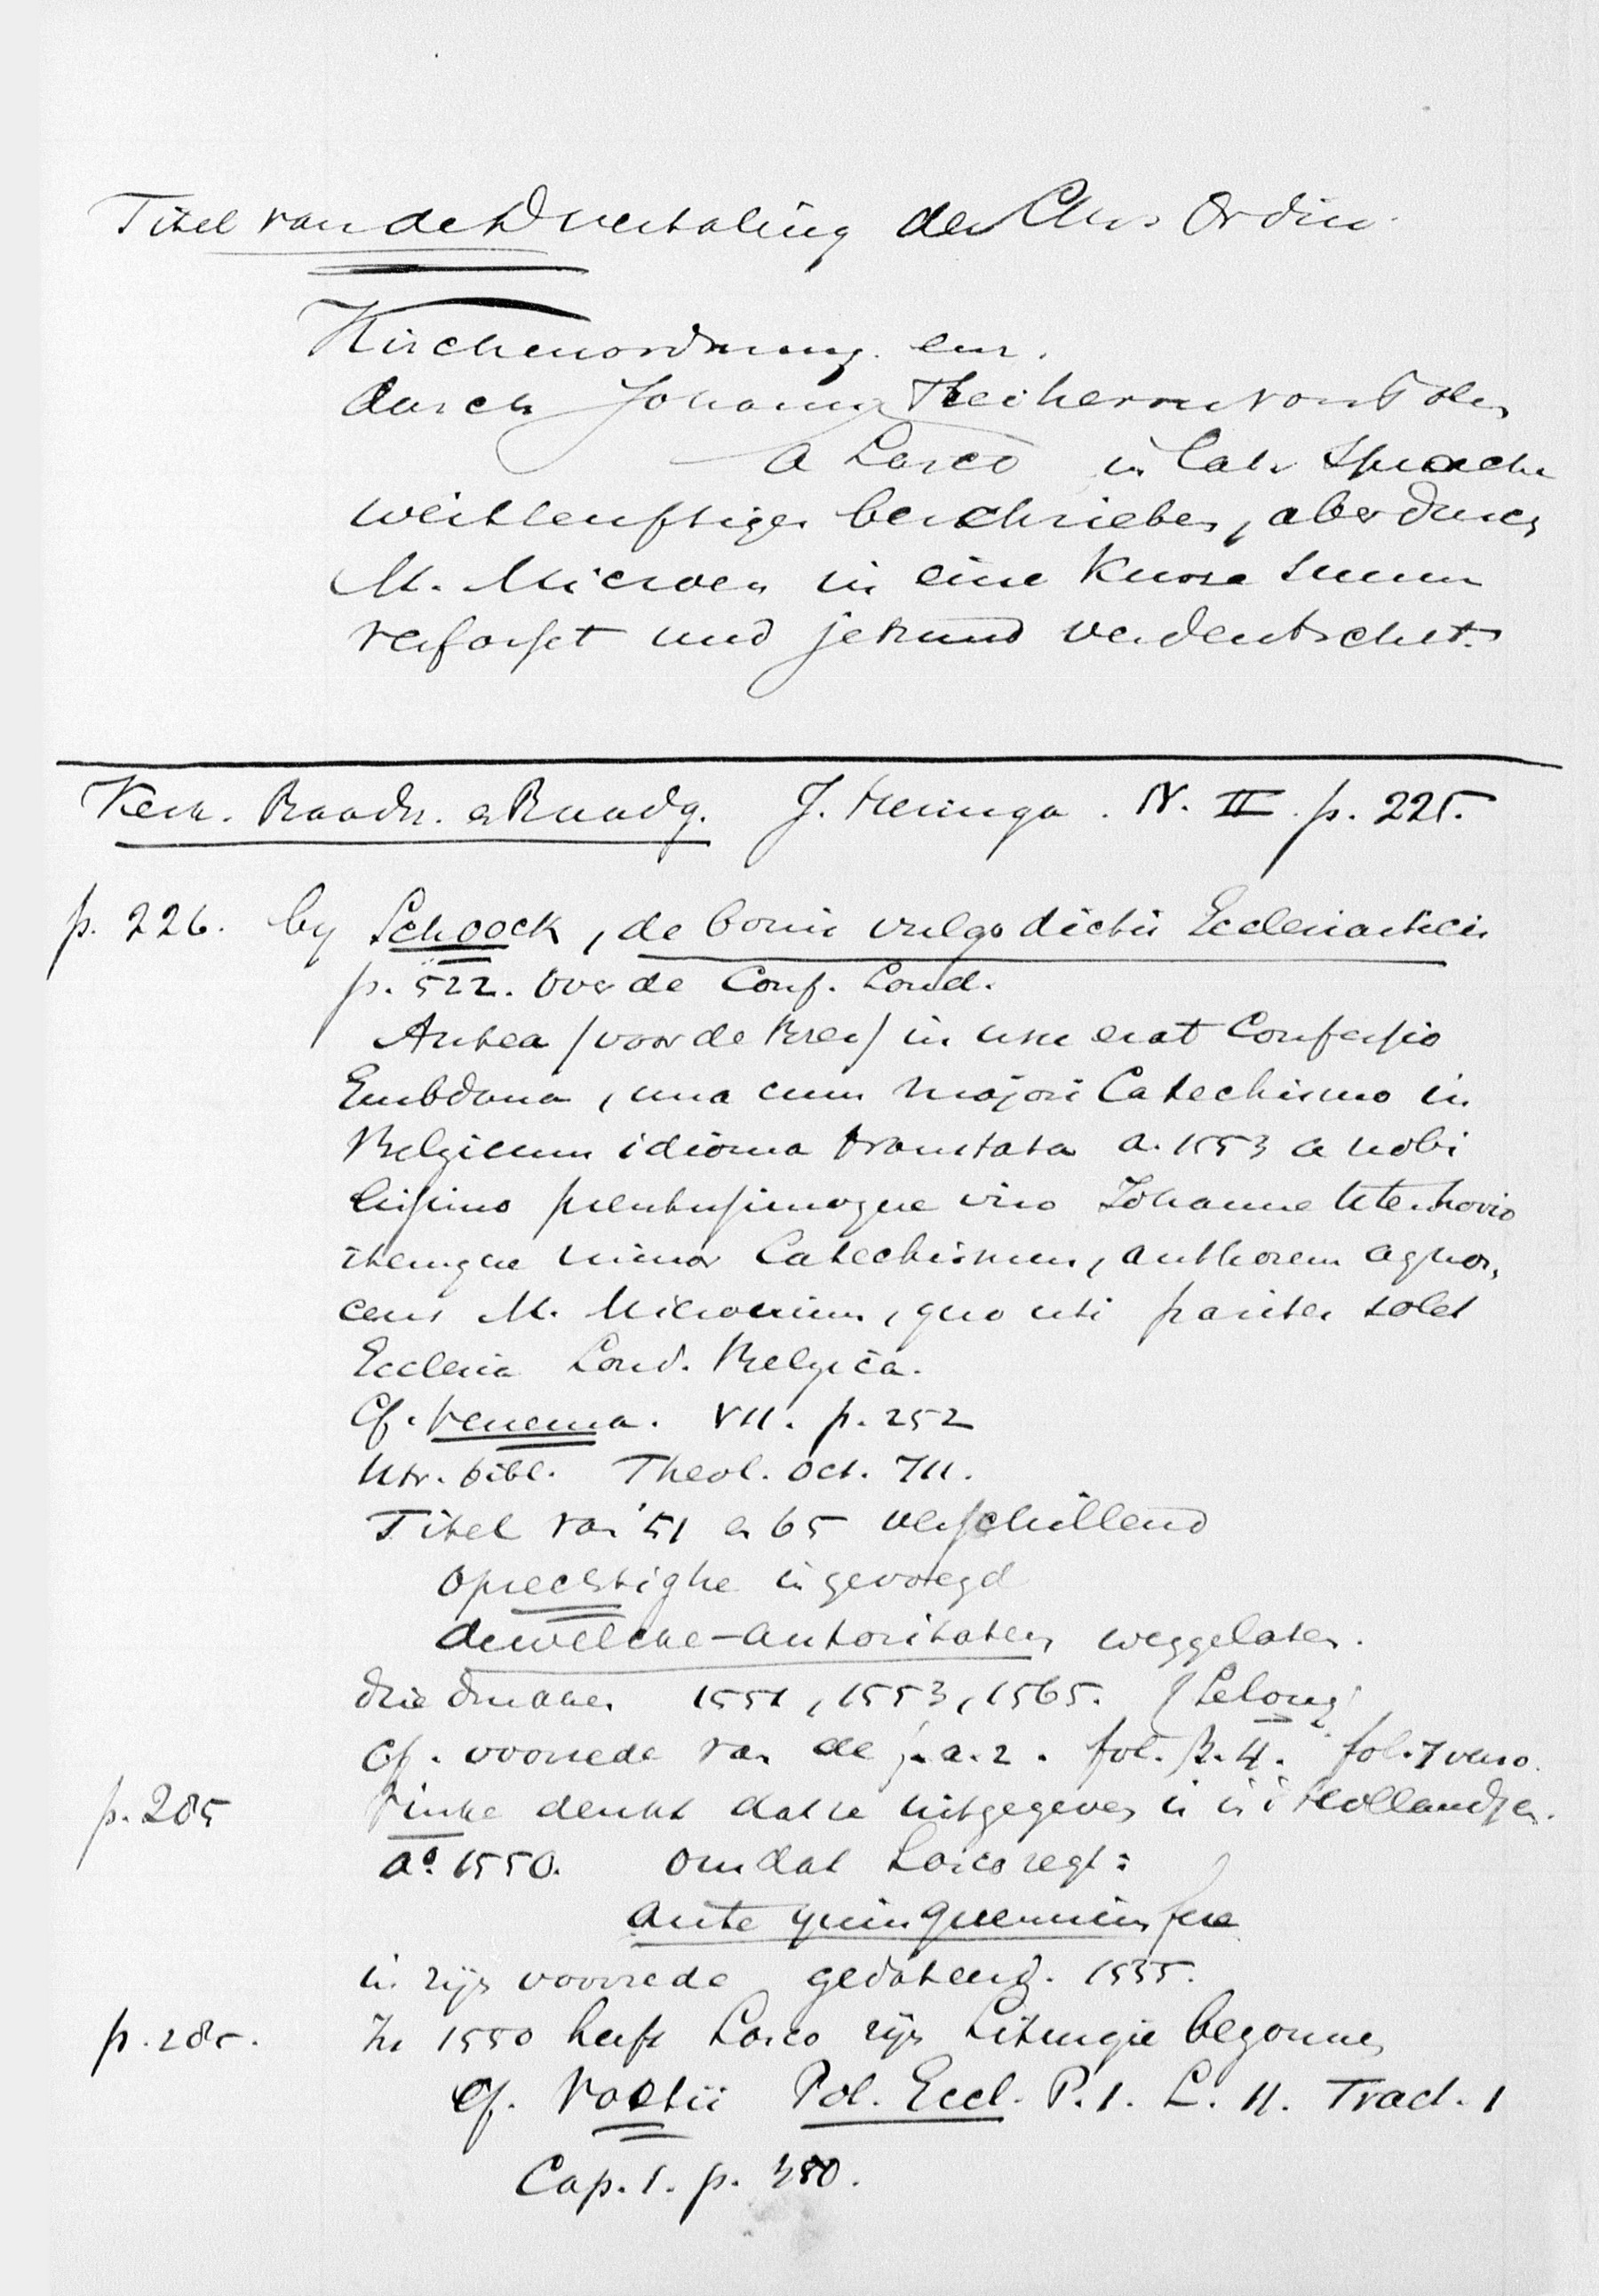 Titel van de D vertaling der Chr. Ordin.
Kirchenordnung. enz.
durch Johann Freiherrn von Polen
a Lasco in Lat. Sprache
weitleuftiger beschrieben, aber durch
M. Micron in eine kurze Summ
verfasset und jetzund verdeutschet.
Kerk. Raadv. en Raadg. J. Heringa. N. II. p. 225.
p. 226. by Schoock, de bonis vulgo dictis Ecclesiasticis
p. 522. Over de Conf. Lond.
Antea /voor de Bres/ in usu erat Confessio
Embdana, una cum majori Catechismo in
Belgicum idioma translata a. 1553 a nobi
lissimo prudentissimoque viro Johanne Utenhovio
itemque minor Catechismus, authorem agnos,
cens M. Micronium, quo uti pariter solet
Ecclesia Lond. Belgica.
Cf. Venema. VII. p. 252
Utr. bibl. Theol. Oct. 711.
Titel van '51 en 65 verschillend
oprechtighe ingevoegd
dewelcke-autoritaten weggelaten.
drie drukken 1551, 1553, 1565. (Lelong)
Cf. voorrede van de fol. 7 verso.
p. 285 Vinke denkt dat ze uitgegeven is in 't Hollandsch.
a° 1550. omdat Lasco zegt:
ante quinquennium fere
in zijn voorrede gedateerd. 1555.
p. 285. In 1550 heeft Lasco zijn Liturgie begonnen
cf. Voetii Pol. Eccl. P. I. L. II. Tract. I
Cap. I. p. 380.